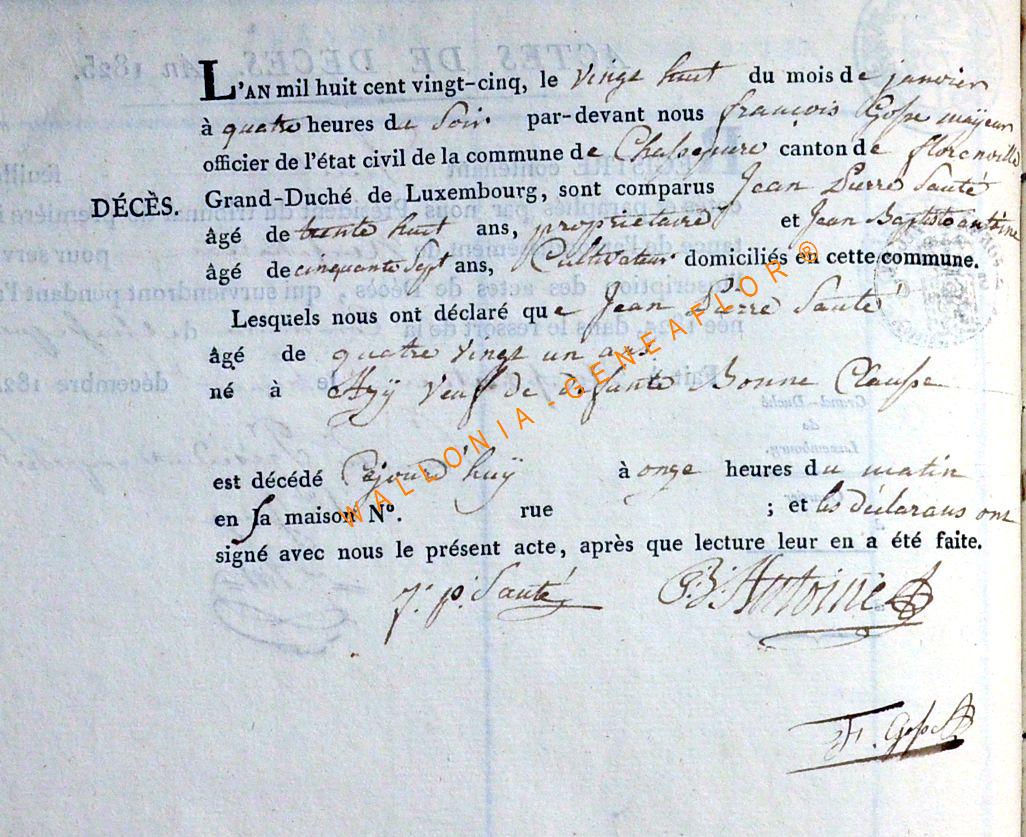 L'AN mil huit cent vingt-cinq, le vingt huit du mois de janvier
à quatre heures du soir par-devant nous françois Gosse mayeur
officier de l'état civil de la commune de Chassepierre canton de florenville
DÉCÈS. Grand-Duché de Luxembourg, sont comparus Jean Pierre Santé
âgé de trente huit ans, propriétaire et Jean Baptiste antoine
âgé de cinquante sept ans, Cultivateur domiciliés en cette commune.
Lesquels nous ont déclaré que Jean Pierre Santé
âgé de quatre vingt un ans
né à Azÿ veuf de defunte Bonne
est décédé cejourd'huÿ à onze heures du matin
en sa maison N°. rue ; et les déclarans ont
signé avec nous le présent acte, après que lecture leur en a été faite.
j. p. Santé J. B. Antoine
F. Gosse
WALLONIA - GENEAFLOR ®